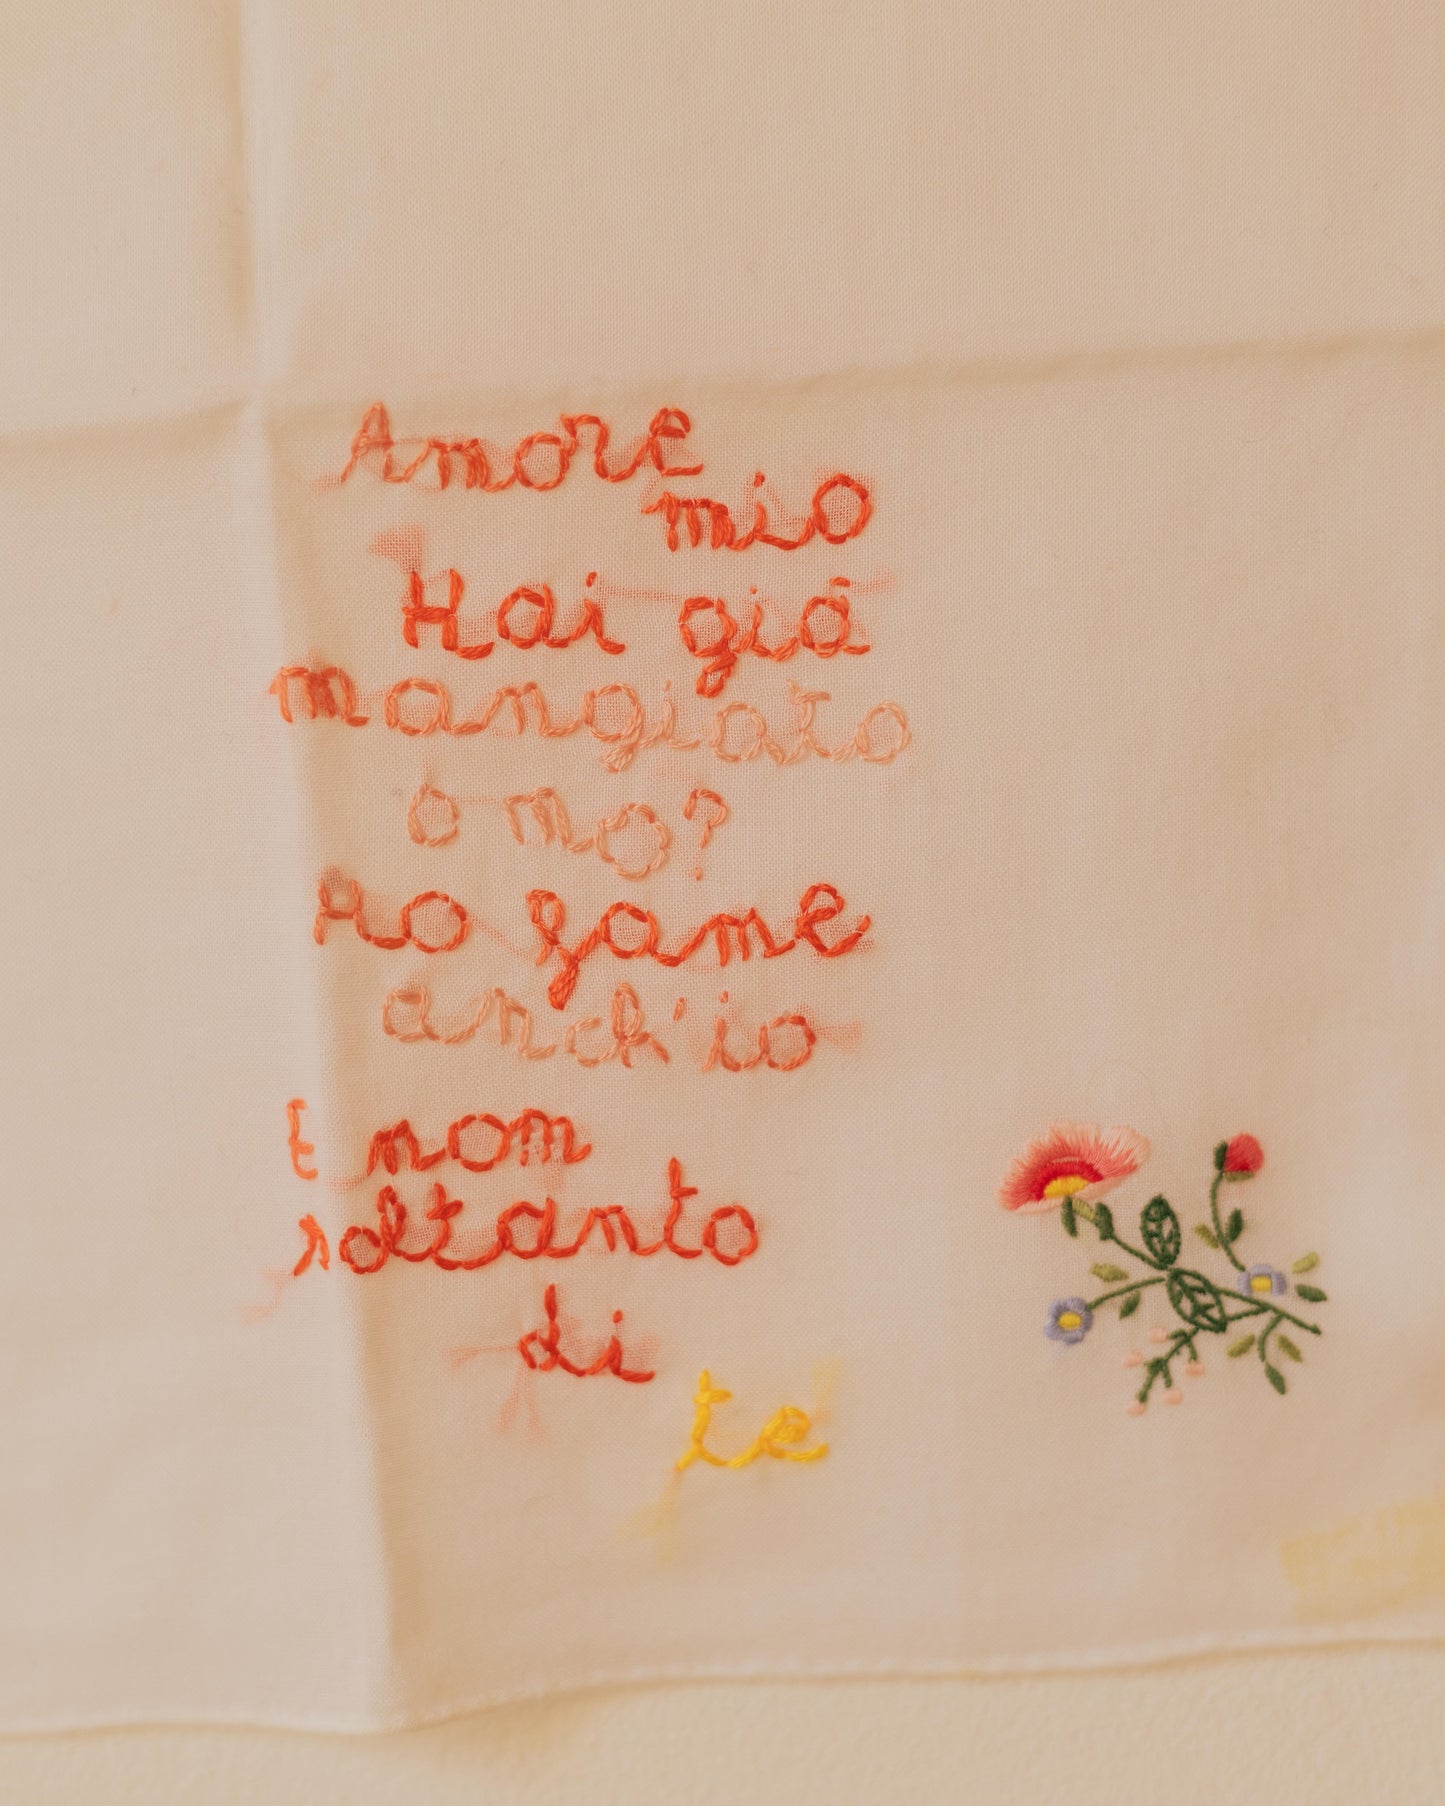 Amore
mio
Hai già
mangiato
o no?
Ho fame
anch'io
E non
soltanto
di
te